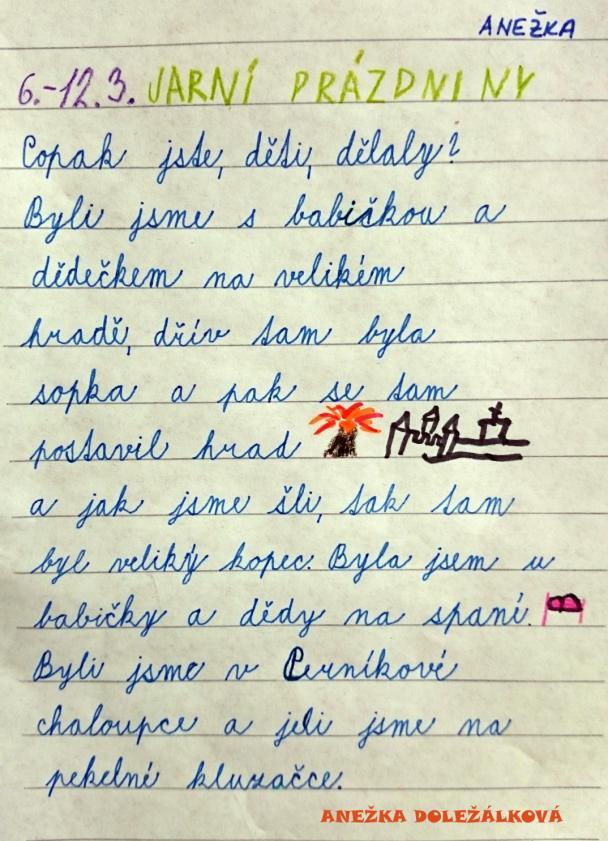 ANEŽKA
6.-12.3. JARNÍ PRÁZDNINY
Copak jste, děti, dělaly?
Byli jsme s babičkou a
dědečkem na velikém
hradě, dřív tam byla
sopka a pak se tam
postavil hrad
a jak jsme šli, tak tam
byl veliký kopec. Byla jsem u
babičky a dědy na spaní.
Byli jsme v Perníkové
chaloupce a jeli jsme na
pekelné kluzačce.
ANEŽKA DOLEŽÁLKOVÁ